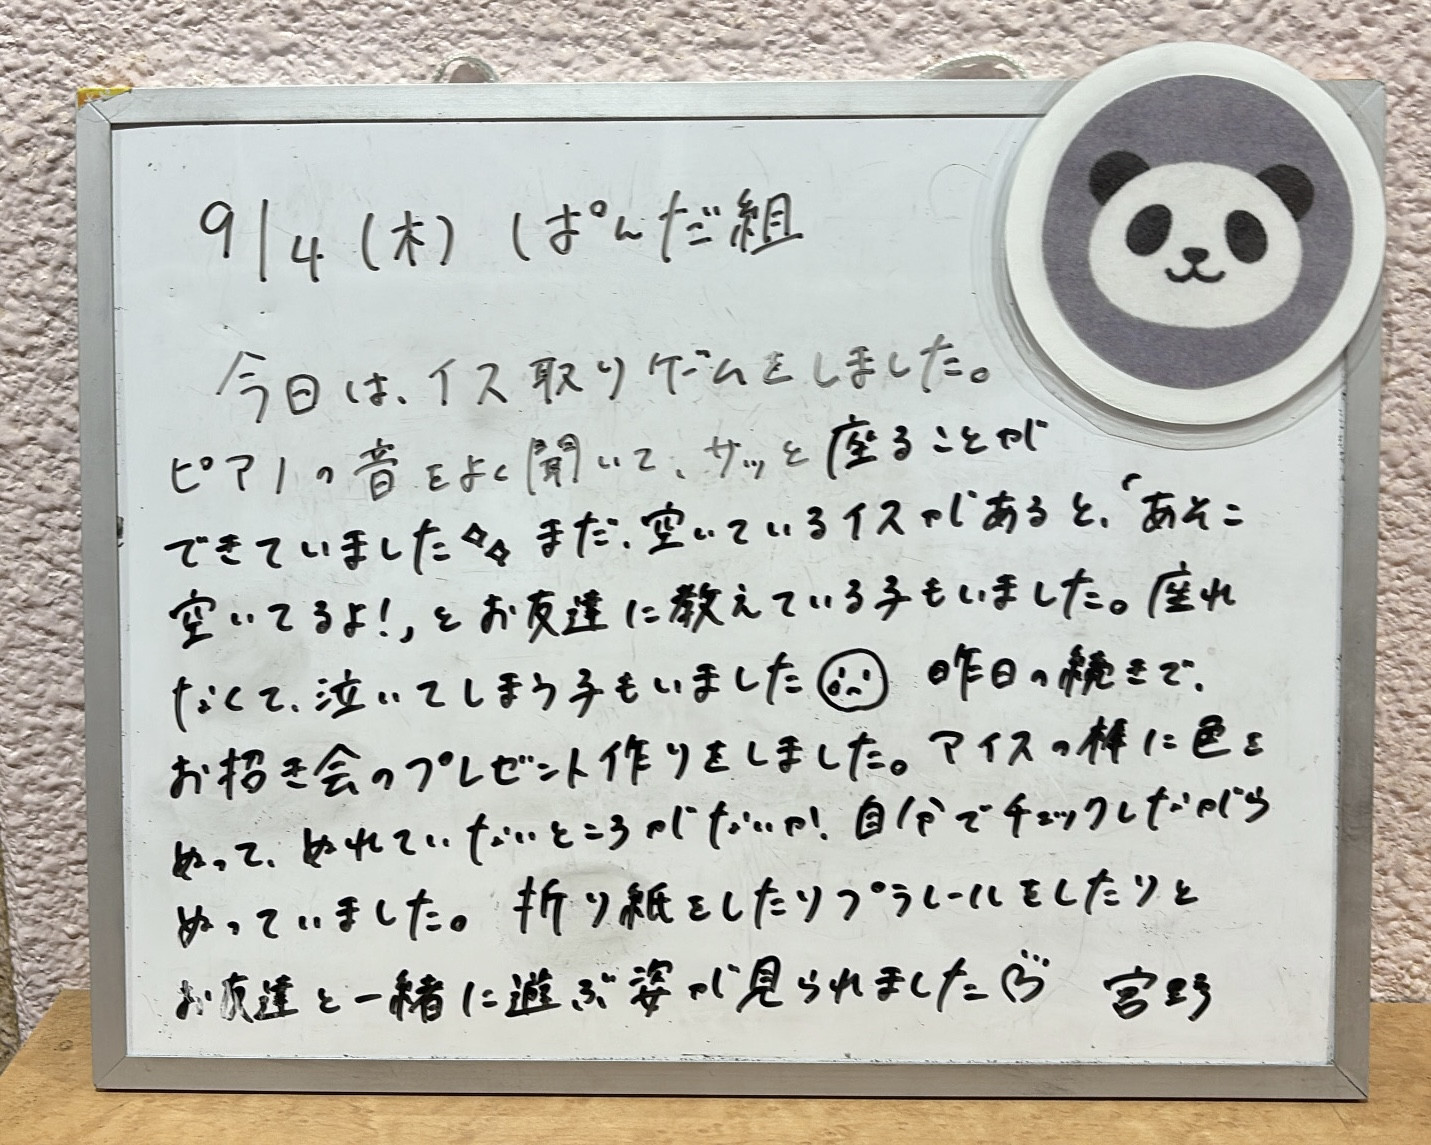 9/4(木) ぱんだ組
今日は、イス取りゲームをしました。
ピアノの音をよく聞いて、サッと座ることが
できていました まだ、空いているイスがあると、「あそこ
空いてるよ!」とお友達に教えている子もいました。座れ
なくて、泣いてしまう子もいました 昨日の続きで、
お招き会のプレゼント作りをしました。アイスの棒に色を
ぬって、ぬれていないところがないか!自分でチェックしながら
ぬっていました。折り紙をしたりプラレールをしたりと
お友達と一緒に遊ぶ姿が見られました 宮野